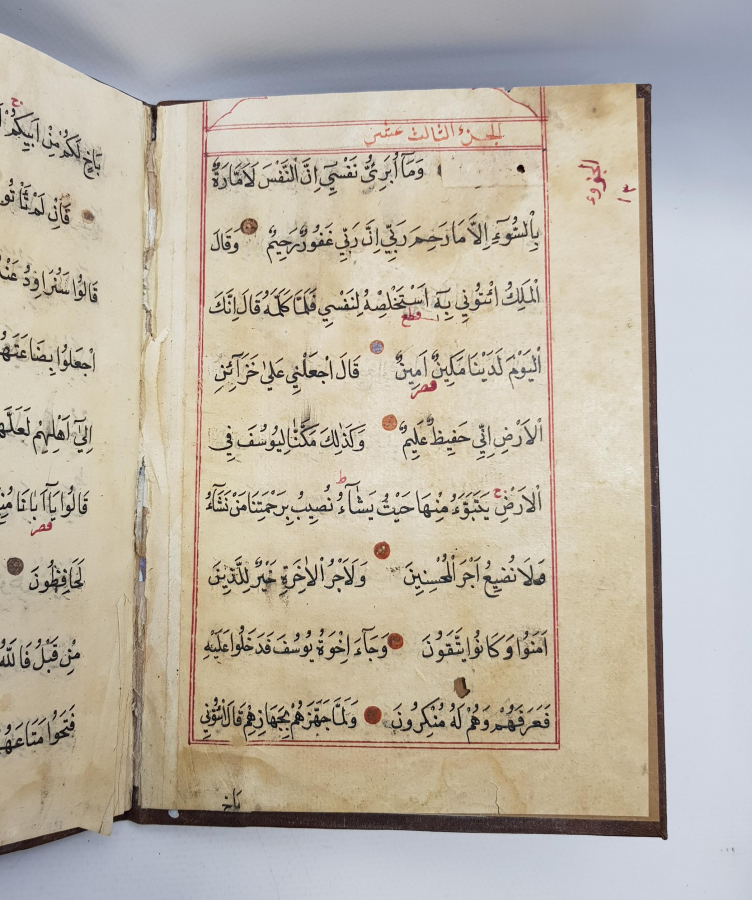 الجزء الثالث عشر
الجزء
١٣
وَمَآ اُبَرِئُ نَفْسِيٓ اِنَّ النَّفْسَ لَاَمَّارَةٌ
بِالسُّوٓءِ اِلَّا مَا رَحِمَ رَبّٖي اِنَّ رَبّٖي غَفُورٌ رَحٖيمٌ وَقَالَ
الْمَلِكُ ائْتُونٖي بِهٖٓ اَسْتَخْلِصْهُ لِنَفْسٖي فَلَمَّا كَلَّمَهُ قَالَ اِنَّكَ
قطع
الْيَوْمَ لَدَيْنَا مَكٖينٌ اَمٖينٌ قَالَ اجْعَلْنٖي عَلٰى خَزَآئِنِ
قصر
الْاَرْضِ اِنّٖي حَفٖيظٌ عَلٖيمٌ وَكَذٰلِكَ مَكَّنَّا لِيُوسُفَ فِي
ط
ج
الْاَرْضِ يَتَبَوَّءُ مِنْهَا حَيْثُ يَشَآءُ نُصٖيبُ بِرَحْمَتِنَا مَنْ نَشَآءُ
وَلَا نُضٖيعُ اَجْرَ الْمُحْسِنٖينَ وَلَاَجْرُ الْاٰخِرَةِ خَيْرٌ لِلَّذٖينَ
اٰمَنُوا وَكَانُوا يَتَّقُونَ وَجَآءَ اِخْوَةُ يُوسُفَ فَدَخَلُوا عَلَيْهِ
فَعَرَفَهُمْ وَهُمْ لَهُ مُنْكِرُونَ وَلَمَّا جَهَّزَهُمْ بِجَهَازِهِمْ قَالَ ائْتُونٖي
بَاخٍ
ج
بَاخٍ لَكُمْ مِنْ اَبٖيكُمْ
فَاِنْ لَمْ تَاْتُو
قَالُوا سَنُرَاوِدُ عَنْهُ
اجْعَلُوا بِضَاعَتَهُمْ
اِلٰٓى اَهْلِهِمْ لَعَلَّهُمْ
قَالُوا يَآ اَبَانَا مُنِعَ
قصر
لَحَافِظُونَ
مِنْ قَبْلُ فَاللّٰهُ
فَتَحُوا مَتَاعَهُمْ